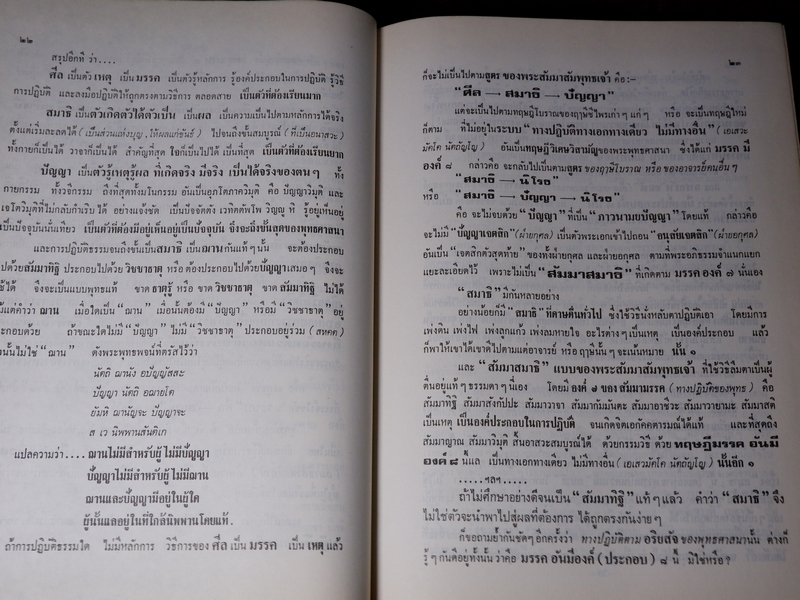 ๒๒
สรุปอีกที ว่า....
ศีล เป็นตัว เหตุ เป็น มรรค เป็นตัวรู้หลักการ รู้องค์ประกอบในการปฏิบัติ รู้วิธี
การปฏิบัติ และลงมือปฏิบัติให้ถูกตรงตามวิธีการ ตลอดสาย เป็นตัวที่ต้องเรียนมาก
สมาธิ เป็นตัวเกิดตัวได้ตัวเป็น เป็นผล เป็นความเป็นไปตามหลักการได้จริง
ตั้งแต่เริ่มละลดได้ (เป็นส่วนแห่งบุญ, ให้ผลแก่ขันธ์) ไปจนถึงขั้นสมบูรณ์ (ที่เป็นอนาสวะ)
ทั้งกายก็เป็นได้ วาจาก็เป็นได้ สำคัญที่สุด ใจก็เป็นไปได้ เป็นที่สุด เป็นตัวที่ต้องเรียนยาก
ปัญญา เป็นตัวรู้เหตุรู้ผล ที่เกิดจริง มีจริง เป็นได้จริงของตนๆ ทั้ง
กายกรรม ทั้งวจีกรรม ถึงที่สุดทั้งมโนกรรม อันเป็นอุภโตภาควิมุติ คือ ปัญญาวิมุติ และ
เจโตวิมุติที่ไม่กลับกำเริบได้ อย่างแจ้งชัด เป็นปัจจัตตัง เวทิตัพโพ วิญญูหิ รู้อยู่เห็นอยู่
เป็นปัจจุบันนั่นเทียว เป็นตัวที่ต้องมีอยู่เห็นอยู่เป็นปัจจุบัน จึงจะถึงขั้นสุดของพุทธศาสนา
และการปฏิบัติธรรมจนถึงขั้นเป็นสมาธิ เป็นฌานกันแท้ๆ นั้น จะต้องประกอบ
ไปด้วยสัมมาทิฐิ ประกอบไปด้วย วิชชาธาตุ หรือ ต้องประกอบไปด้วยปัญญาเสมอๆ จึงจะ
ได้ จึงจะเป็นแบบพุทธแท้ ขาด ธาตุรู้ หรือ ขาด วิชชาธาตุ ขาด สัมมาทิฐิ ไม่ได้
แต่คำว่า ฌาน เมื่อใดเป็น “ฌาน” เมื่อนั้นต้องมี “ปัญญา” หรือมี “วิชชาธาตุ” อยู่
ประกอบด้วย ถ้าขณะใดไม่มี “ปัญญา” ไม่มี “วิชชาธาตุ” ประกอบอยู่ร่วม (สหคต)
นั้นไม่ใช่ “ฌาน” ดังพระพุทธพจน์ที่ตรัสไว้ว่า
นัตถิ ฌานัง อปัญญัสสะ
ปัญญา นัตถิ อฌายโต
ยัมหิ ฌานัญจะ ปัญญาจะ
ส เว นิพพานสันติเก
แปลความว่า.... ฌานไม่มีสำหรับผู้ไม่มีปัญญา
ปัญญาไม่มีสำหรับผู้ไม่มีฌาน
ฌานและปัญญามีอยู่ในผู้ใด
ผู้นั้นแลอยู่ในที่ใกล้นิพพานโดยแท้.
ถ้าการปฏิบัติธรรมใด ไม่มีหลักการ วิธีการของ ศีล เป็น มรรค เป็น เหตุ แล้ว
๒๓
ก็จะไม่เป็นไปตามสูตร ของพระสัมมาสัมพุทธเจ้า คือ:-
“ศีล → สมาธิ → ปัญญา”
แต่จะเป็นไปตามทฤษฎีโบราณของฤาษีชีไพรเก่าๆ แก่ๆ หรือ จะเป็นทฤษฎีใหม่
ก็ตาม ที่ไม่อยู่ในระบบ “ทางปฏิบัติทางเอกทางเดียว ไม่มีทางอื่น” (เอเสวะ
มัคโค นัตถัญโญ) อันเป็นทฤษฎีวิเศษวิสามัญของพระพุทธศาสนา ซึ่งได้แก่ มรรค มี
องค์ ๘ กล่าวคือ จะกลับไปเป็นตามสูตร ของฤาษีโบราณ หรือ ของอาจารย์คนอื่นๆ
“สมาธิ → นิโรธ”
หรือ “สมาธิ → ปัญญา → นิโรธ”
คือ จะไม่จบด้วย “ปัญญา” ที่เป็น “ภาวนามยปัญญา” โดยแท้ กล่าวคือ
จะไม่มี “ปัญญาเจตสิก” (ฝ่ายกุศล) เป็นตัวพระเอกเข้าไปถอน “อนุสัยเจตสิก” (ฝ่ายอกุศล)
อันเป็น “เจตสิกตัวสุดท้าย” ของทั้งฝ่ายกุศล และฝ่ายอกุศล ตามที่พระอภิธรรมจำแนกแยก
แยะละเอียดไว้ เพราะไม่เป็น “สัมมาสมาธิ” ที่เกิดตาม มรรค องค์ ๗ นั่นเอง
“สมาธิ” มีกันหลายอย่าง
อย่างน้อยก็มี “สมาธิ” ที่ดาษดื่นทั่วไป ซึ่งใช้วิธีนั่งหลับตาปฏิบัติเอา โดยมีการ
เพ่งดิน เพ่งไฟ เพ่งลูกแก้ว เพ่งลมหายใจ อะไรต่างๆ เป็นเหตุ เป็นองค์ประกอบ แล้ว
ก็พาให้เขาได้เขาดีไปตามแต่อาจารย์ หรือ ฤาษีนั้นๆ จะเน้นหมาย นั้น ๑
และ “สัมมาสมาธิ” แบบของพระสัมมาสัมพุทธเจ้า ที่ใช้วิธีลืมตาเป็นผู้
ตื่นอยู่แท้ๆ ธรรมดาๆ นี่เอง โดยมี องค์ ๗ ของ สัมมามรรค (ทางปฏิบัติของพุทธ) คือ
สัมมาทิฐิ สัมมาสังกัปปะ สัมมาวาจา สัมมากัมมันตะ สัมมาอาชีวะ สัมมาวายามะ สัมมาสติ
เป็นเหตุ เป็นองค์ประกอบในการปฏิบัติ จนเกิดจิตเอกัคคตารมณ์ได้แท้ และที่สุดถึง
สัมมาญาณ สัมมาวิมุติ สิ้นอาสวะสมบูรณ์ได้ ด้วยกรรมวิธี ด้วย ทฤษฎีมรรค อันมี
องค์ ๘ นี้แล เป็นทางเอกทางเดียว ไม่มีทางอื่น (เอเสวมัคโค นัตถัญโญ) นั้นอีก ๑
.....ฯลฯ.....
ถ้าไม่ศึกษาอย่างดีจนเป็น “สัมมาทิฐิ” แท้ๆ แล้ว คำว่า “สมาธิ” จึง
ไม่ใช่ตัวจะนำพาไปสู่ผลที่ต้องการ ได้ถูกตรงกันง่ายๆ
ก็ขอถามย้ำกันชัดๆ อีกครั้งว่า ทางปฏิบัติตาม อริยสัจ ของพุทธศาสนานั้น ต่างก็
รู้ๆ กันดีอยู่ทั้งนั้น ว่าคือ มรรค อันมีองค์ (ประกอบ) ๘ นี้ มิใช่หรือ?